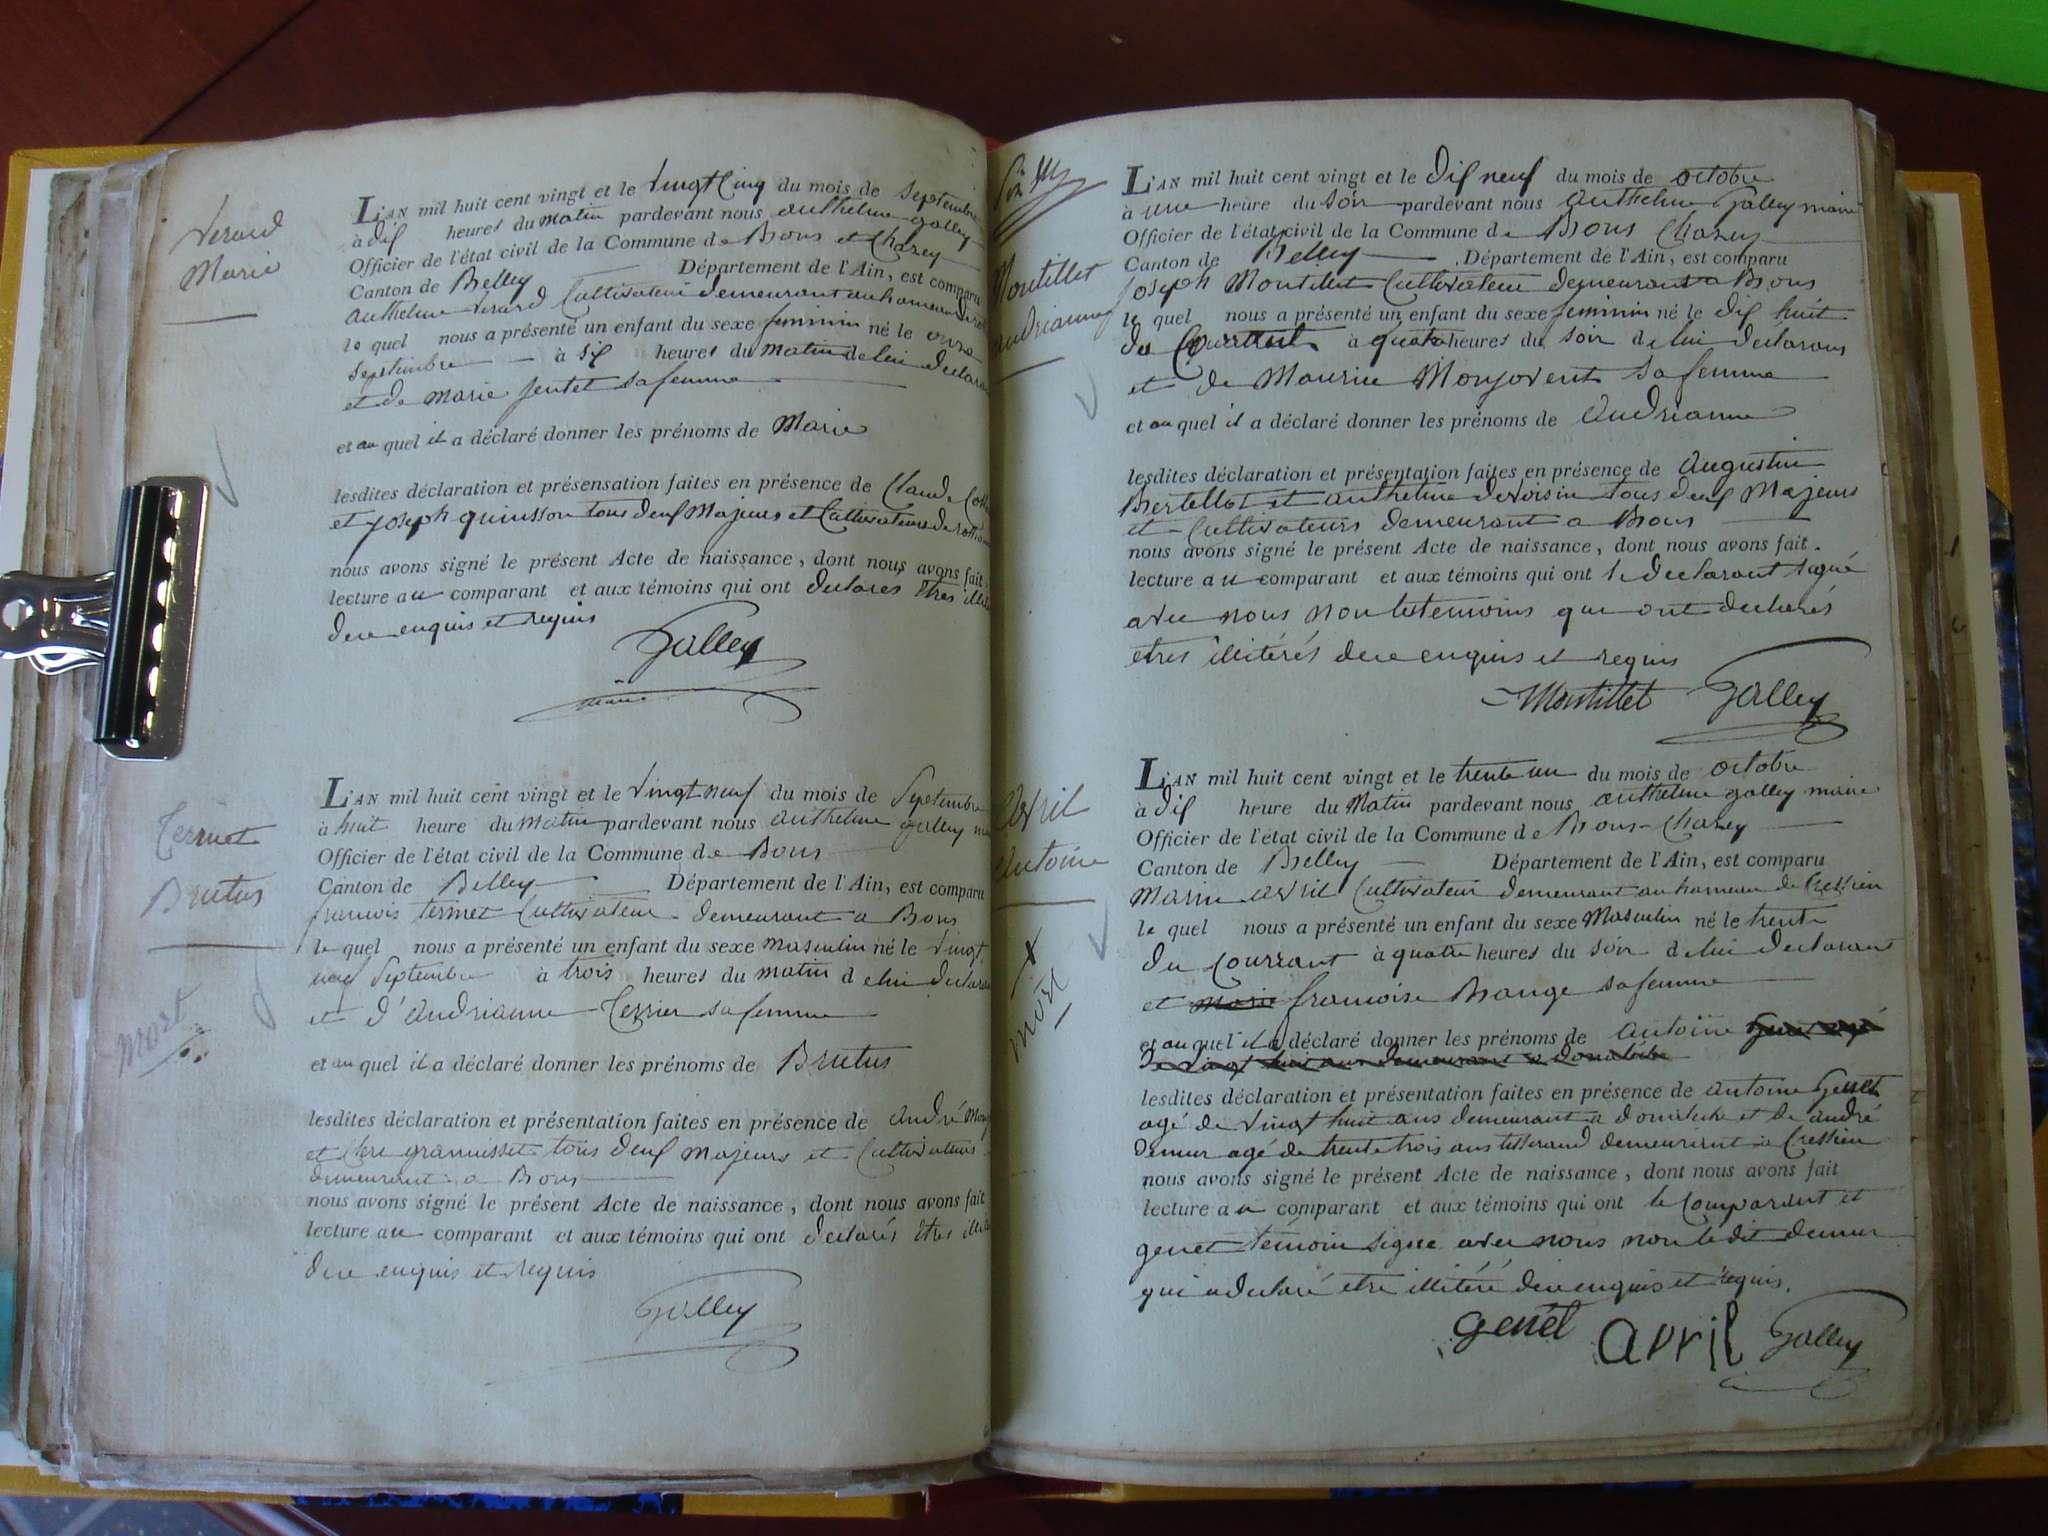 Verard
Marie
L'AN mil huit cent vingt et le vingt cinq du mois de septembre
à dix heures du matin pardevant nous anthelme galley
Officier de l'état civil de la Commune de Bons et Chazey
Canton de Belley Département de l'Ain, est comparu
anthelme verard Cultivateur demeurant au hameau
le quel nous a présenté un enfant du sexe feminin né le onze
septembre à six heures du matin de lui declarant
et de marie jentet sa femme
et au quel il a déclaré donner les prénoms de Marie
lesdites déclaration et présensation faites en présence de Claude
et joseph quinsson tous deux Majeurs et Cultivateurs
nous avons signé le présent Acte de naissance, dont nous avons fait
lecture au comparant et aux témoins qui ont declares etres
de ce enquis et requis
Galley
maire
Termet
Brutus
mort
L'AN mil huit cent vingt et le vingt neuf du mois de septembre
à huit heure du matin pardevant nous anthelme galley
Officier de l'état civil de la Commune de Bons
Canton de Belley Département de l'Ain, est comparu
francois termet Cultivateur demeurant a Bons
le quel nous a présenté un enfant du sexe masculin né le vingt
neuf septembre à trois heures du matin de lui declarant
et d'andrianne Terrier sa femme
et au quel il a déclaré donner les prénoms de Brutus
lesdites déclaration et présentation faites en présence de andré
et granusset tous deux majeurs et Cultivateurs
demeurant a Bons
nous avons signé le présent Acte de naissance, dont nous avons fait
lecture au comparant et aux témoins qui ont declarés etres
de ce enquis et requis
Galley
Montillet
andrianne
L'AN mil huit cent vingt et le dix neuf du mois de octobre
à une heure du soir pardevant nous anthelme Galley maire
Officier de l'état civil de la Commune de Bons Chazey
Canton de Belley Département de l'Ain, est comparu
joseph Montillet Cultivateur demeurant a Bons
le quel nous a présenté un enfant du sexe feminin né le dix huit
du Courrant à quatre heures du soir de lui declarans
et de Maurice Monjovent sa femme
et au quel il a déclaré donner les prénoms de andrianne
lesdites déclaration et présentation faites en présence de augustin
Bertellot et anthelme devoisin tous deux Majeurs
et Cultivateurs demeurant a Bons
nous avons signé le présent Acte de naissance, dont nous avons fait
lecture au comparant et aux témoins qui ont le declarant signé
avec nous non les temoins qui ont declarés
etres illitérés de ce enquis et requis
Montillet Galley
avril
antoine
mort
L'AN mil huit cent vingt et le trente un du mois de octobre
à dix heure du Matin pardevant nous anthelme galley maire
Officier de l'état civil de la Commune de Bons-Chazey
Canton de Belley Département de l'Ain, est comparu
Marin avril Cultivateur demeurant au hameau de Cressieu
le quel nous a présenté un enfant du sexe Masculin né le trente
du courrant à quatre heures du soir de lui declarant
et marie francoise Bange sa femme
et au quel il a déclaré donner les prénoms de antoine genet agé
de vingt huit ans demeurant a
lesdites déclaration et présentation faites en présence de antoine Genet
agé de vingt huit ans demeurant a et de andré
demur agé de trente trois ans tisserand demeurant a Cressieu
nous avons signé le présent Acte de naissance, dont nous avons fait
lecture au comparant et aux témoins qui ont le comparant et
genet témoin signe avec nous non le dit demur
qui a declaré etre illitéré de ce enquis et requis.
genet avril Galley